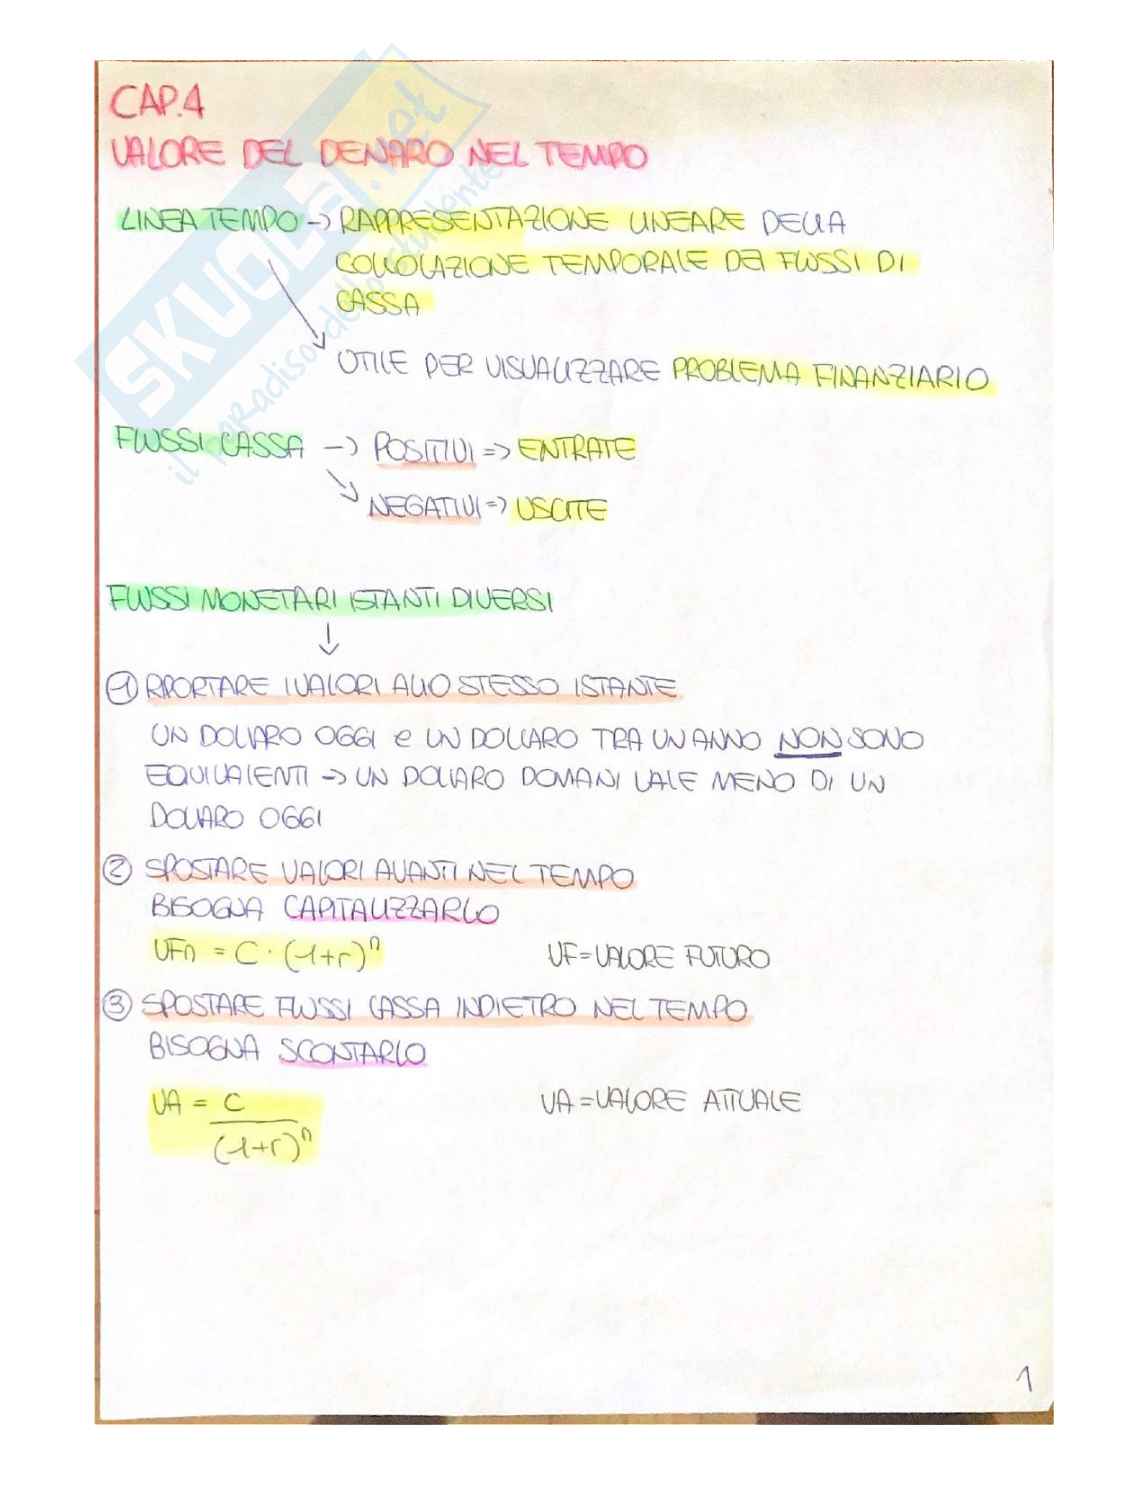 CAP.4
VALORE DEL DENARO NEL TEMPO
LINEA TEMPO -> RAPPRESENTAZIONE LINEARE DELLA
COLLOLAZIONE TEMPORALE DEI FLUSSI DI
CASSA
UTILE PER VISUALIZZARE PROBLEMA FINANZIARIO
FLUSSI CASSA -> POSITIVI => ENTRATE
NEGATIVI => USCITE
FLUSSI MONETARI ISTANTI DIVERSI
↓
1 RIPORTARE I VALORI ALLO STESSO ISTANTE
UN DOLLARO OGGI e UN DOLLARO TRA UN ANNO NON SONO
EQUIVALENTI -> UN DOLLARO DOMANI VALE MENO DI UN
DOLLARO OGGI
2 SPOSTARE VALORI AVANTI NEL TEMPO
BISOGNA CAPITALIZZARLO
VFn = C · (1+r)^n VF=VALORE FUTURO
3 SPOSTARE FLUSSI CASSA INDIETRO NEL TEMPO
BISOGNA SCONTARLO
VA = C / (1+r)^n VA=VALORE ATTUALE
1
SKUOLA.net
il paradiso dello studente